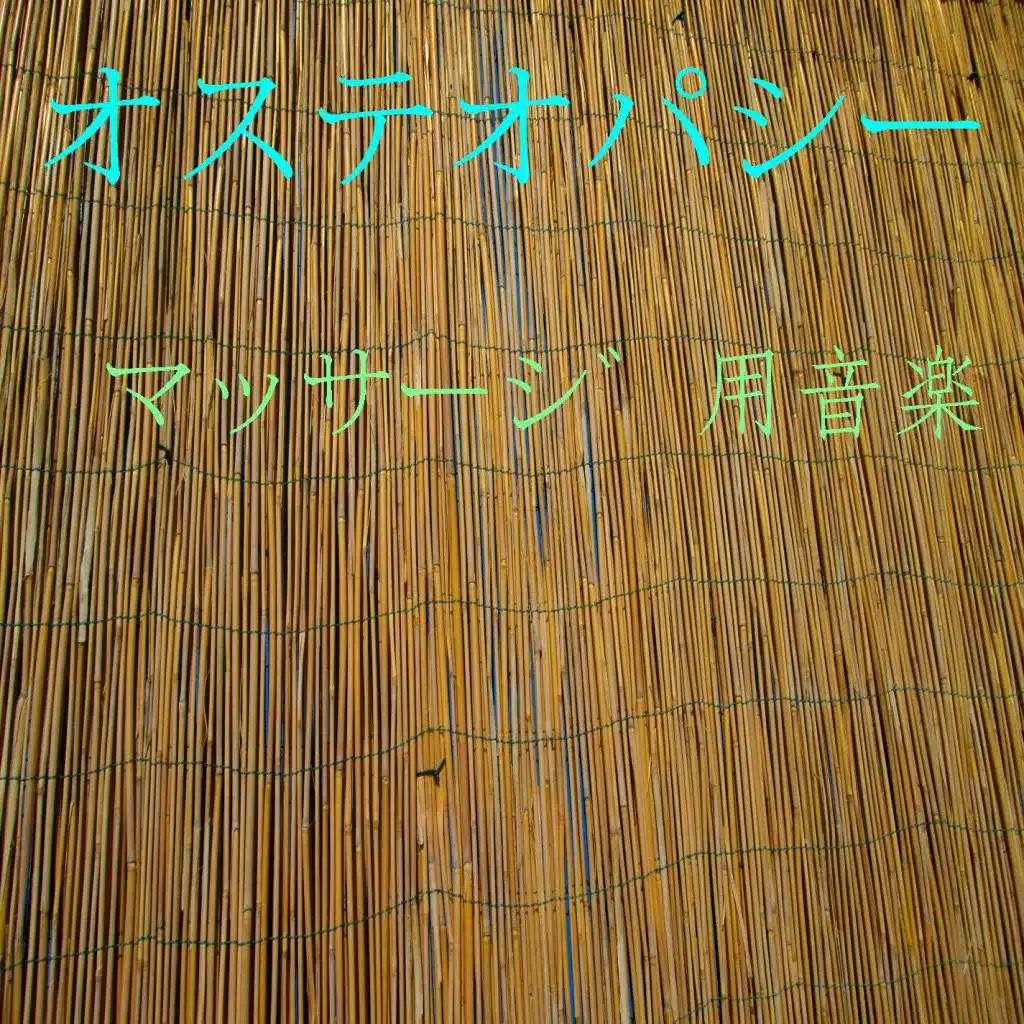 オステオパシー
マッサージ 用音楽